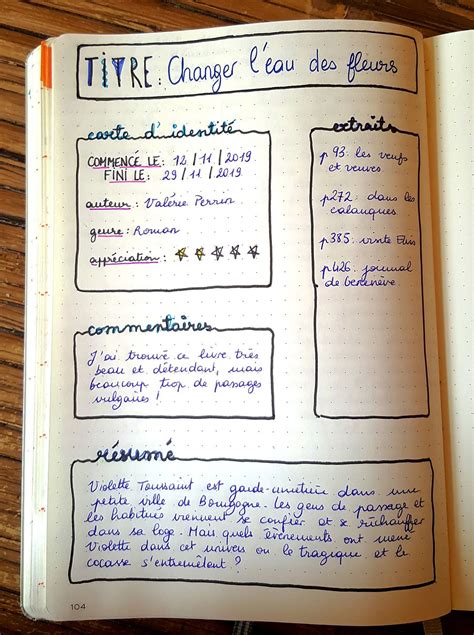 TITRE : Changer l'eau des fleurs
carte d'identité
COMMENCÉ LE : 12 / 11 / 2019
FINI LE : 29 / 11 / 2019
auteur : Valérie Perrin
genre : Roman
appréciation :
extraits
p 93: les veufs
et veuves
p272: dans les
calanques
p.385: visite Elis
p.426: journal
de
commentaires
J'ai trouvé ce livre très
beau et détendant, mais
beaucoup trop de passages
vulgaires !
résumé
Violette Toussaint est garde-cimetière dans une
petite ville de Bourgogne. Les gens de passage et
les habitués viennent se confier et se réchauffer
dans sa loge. Mais quels évènements ont mené
Violette dans cet univers où le tragique et le
cocasse s'entremêlent ?
104